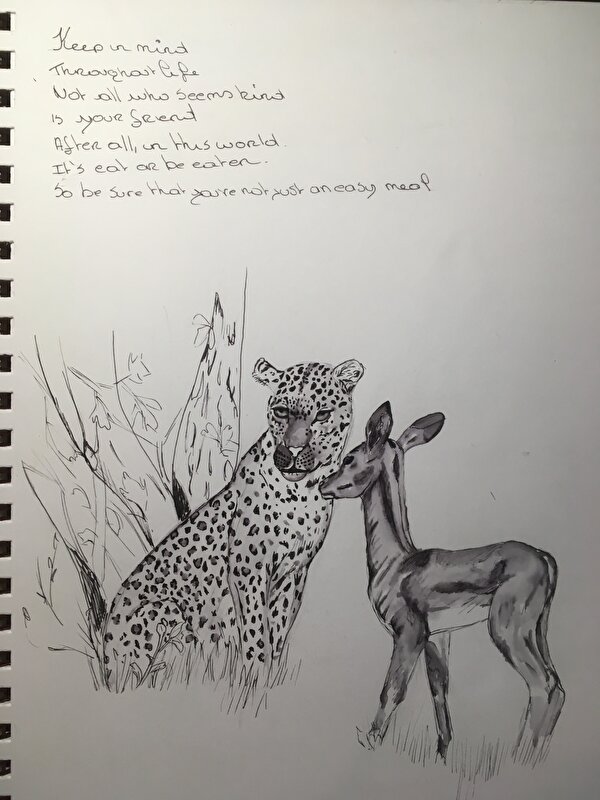 Keep in mind
Throughout life
Not all who seems kind
Is your friend
After all, in this world.
It's eat or be eaten.
So be sure that you're not just an easy meal